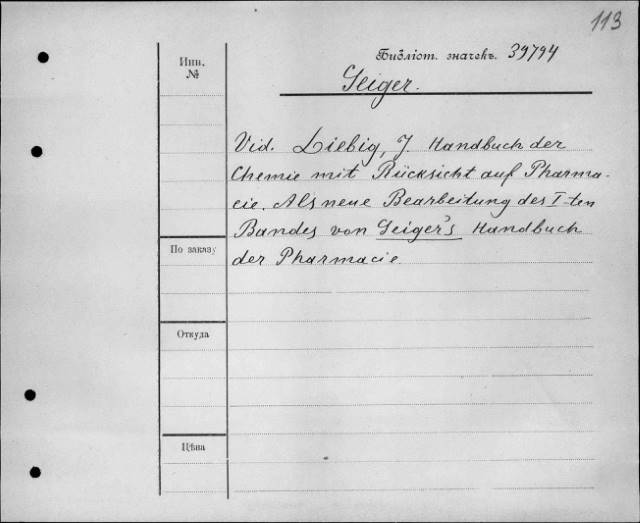 113
Инн. №
Библіот. значекъ. 39794
Geiger.
Vid. Liebig, J. Handbuch der
Chemie mit Rücksicht auf Pharma-
cie. Als neue Bearbeitung des I-ten
Bandes von Geiger's Handbuch
der Pharmacie
По заказу
Откуда
Цѣна